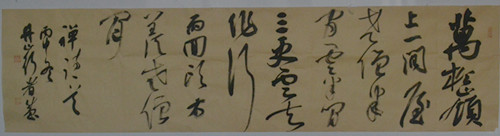 萬松嶺
上一間屋
老僧半
間雲半間
三更雲去
作行
雨回頭方
羨老僧
閒